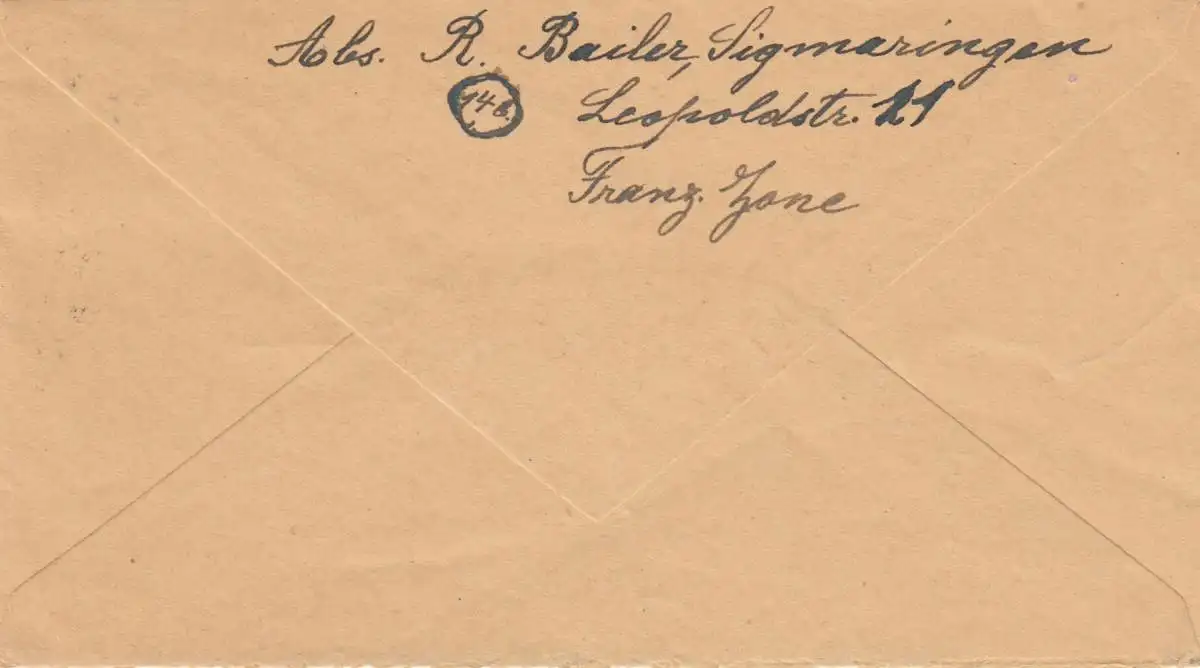 Abs. R. Bailer, Sigmaringen
14b. Leopoldstr. 11
Franz. Zone